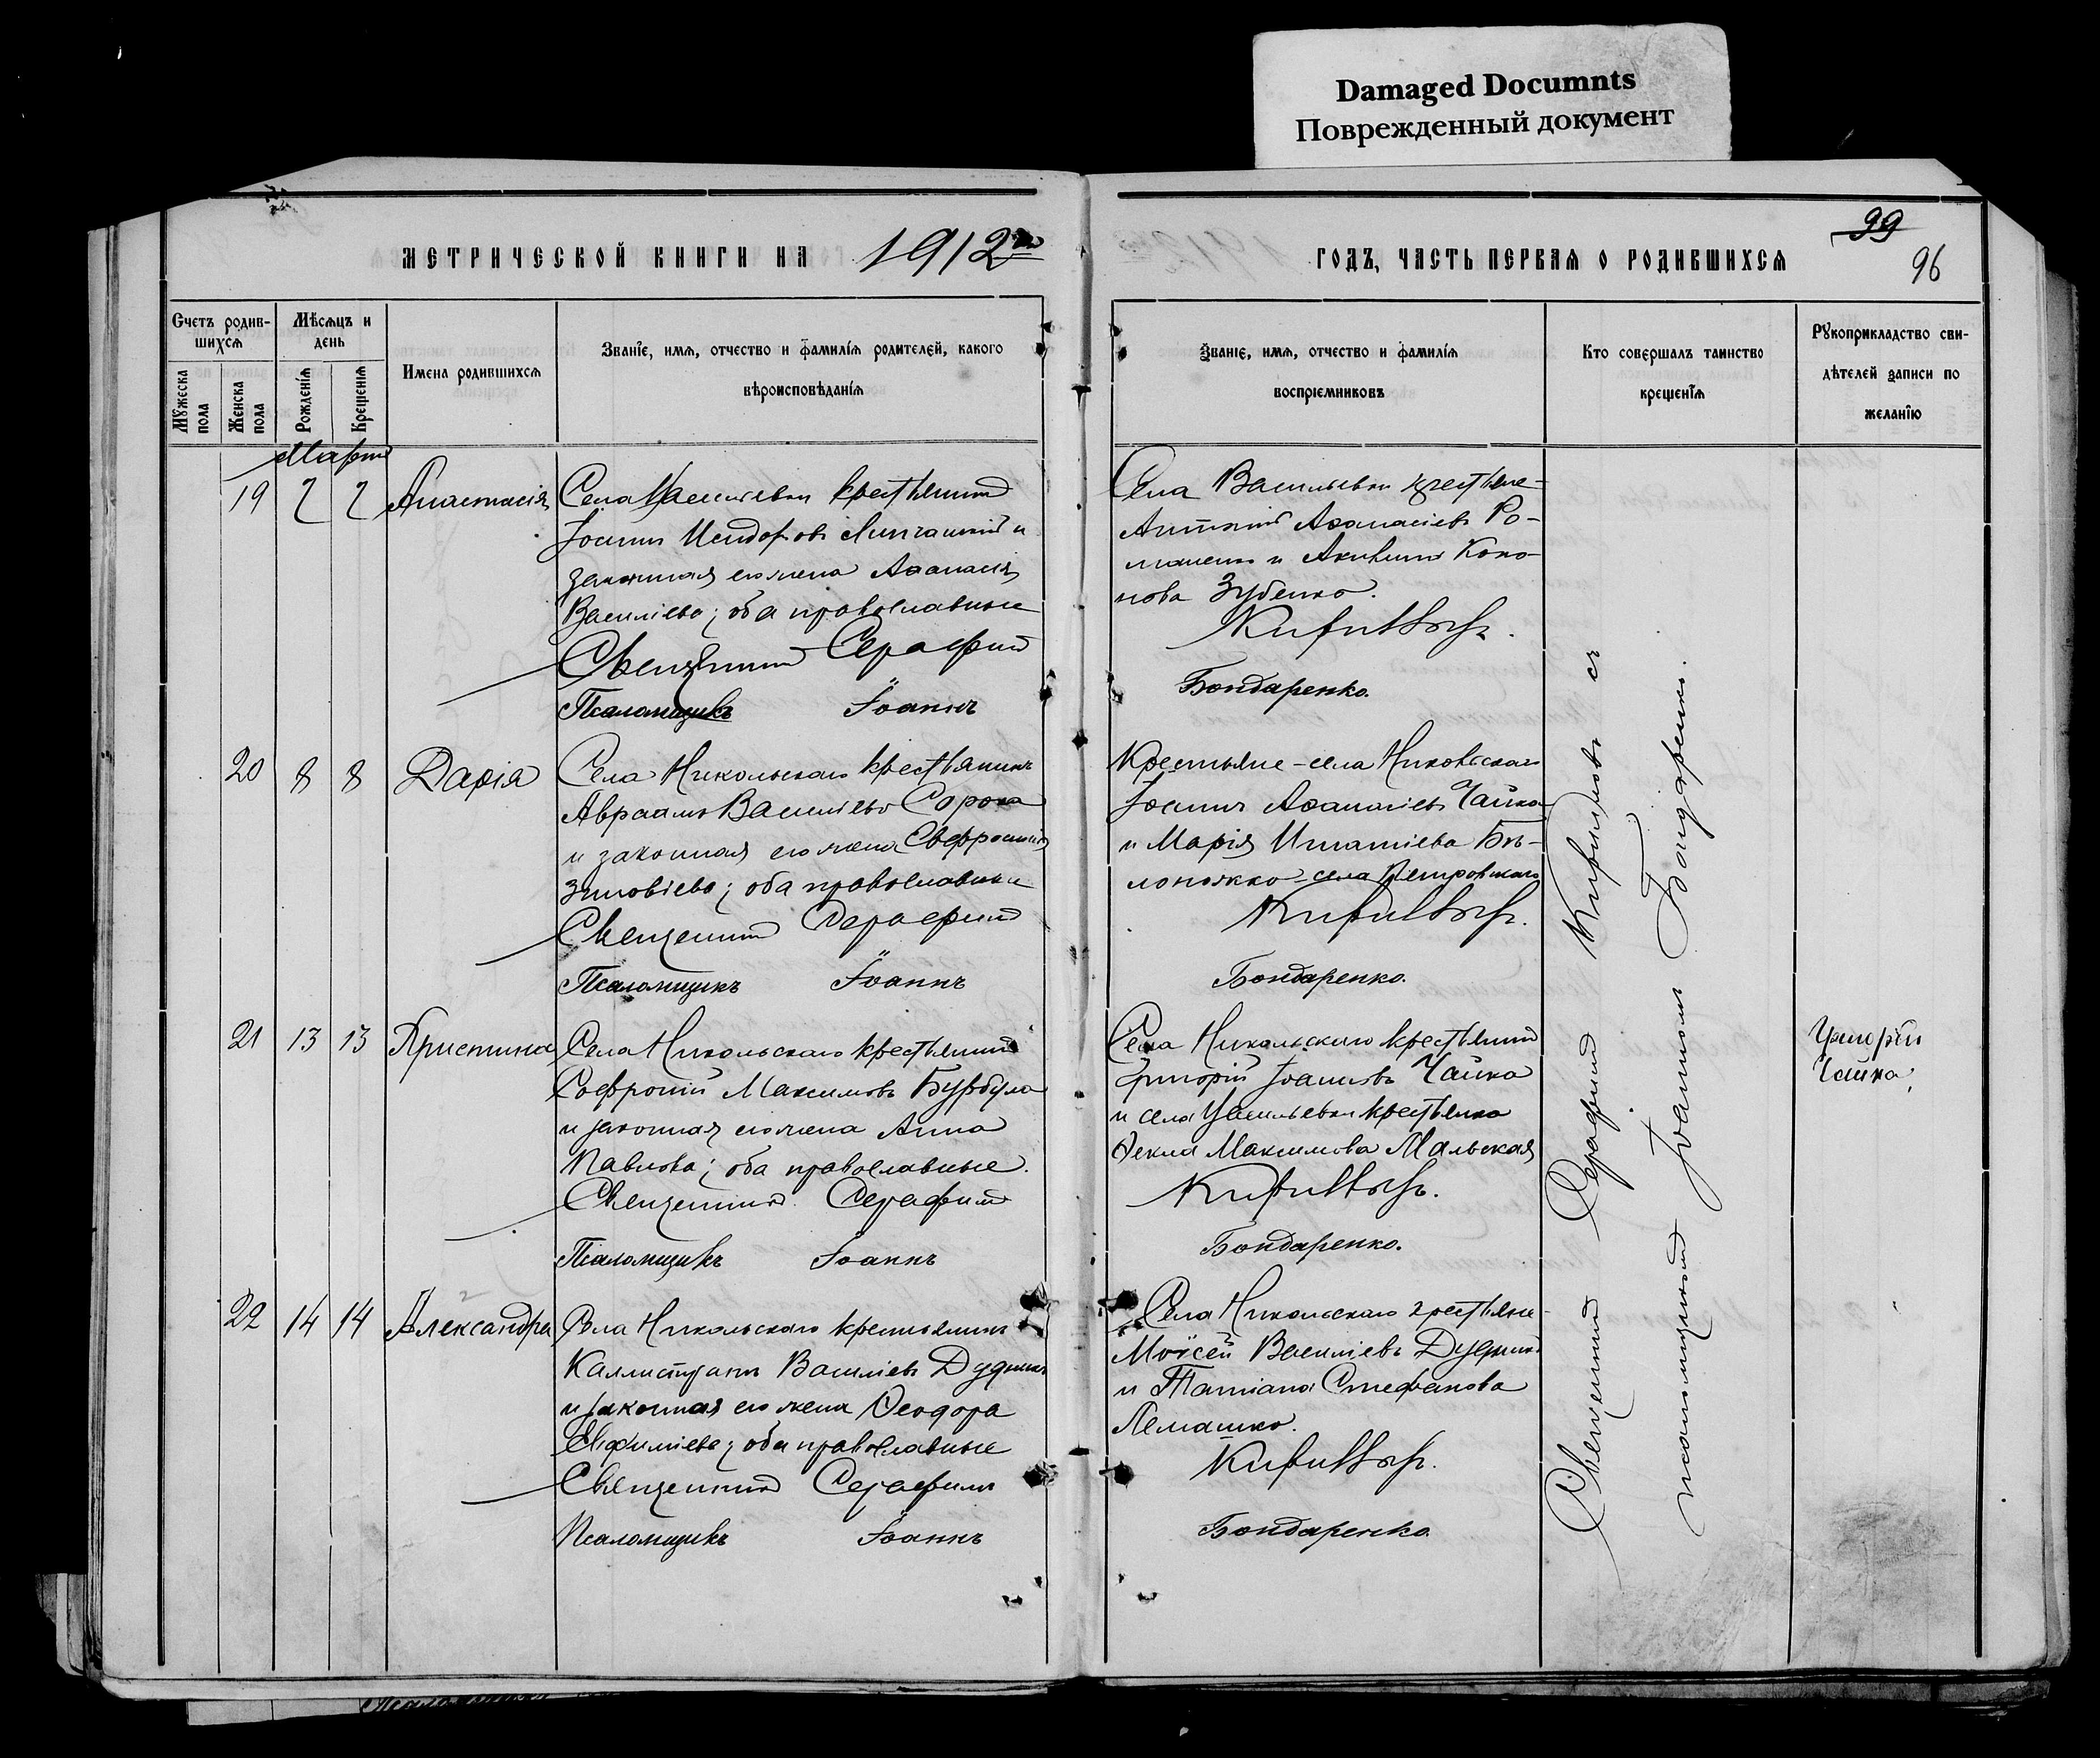 Damaged Documnts
Поврежденный документ
МЕТРИЧЕСКОЙ КНИГИ НА 1912
Счетъ родив-
шихся
Мѣсяцъ и
день
Имена родившихся
Званіе, имя, отчество и фамилія родителей, какого
вѣроисповѣданія
Мужеска
пола
Женска
пола
Рожденія
Крещенія
Мартъ
19 2 2 Анастасія
Села Васильевки крестьянинъ
Іоаннъ Исидоровъ и
законная его жена
Василіева; оба православные
Священникъ Серафимъ
Псаломщикъ Іоаннъ
20 8 8 Дарія
Села Никольскаго крестьянинъ
Авраамъ Василіевъ Сорока
и законная его жена Евфросинія
Зиновіева; оба православные
Священникъ Серафимъ
Псаломщикъ Іоаннъ
21 13 13 Христина
Села Никольскаго крестьянинъ
Софроній Максимовъ Бурбула
и законная его жена Анна
Павлова; оба православные.
Священникъ Серафимъ
Псаломщикъ Іоаннъ
22 14 14 Александра
Села Никольскаго крестьянинъ
Каллистратъ Василіевъ Дудникъ
и законная его жена Ѳеодора
Евфиміева; оба православные
Священникъ Серафимъ
Псаломщикъ Іоаннъ
99
96
ГОДЪ, ЧАСТЬ ПЕРВАЯ О РОДИВШИХСЯ
Званіе, имя, отчество и фамилія
воспріемниковъ
Кто совершалъ таинство
крещенія
Рукоприкладство сви-
дѣтелей записи по
желанію
Села Васильевки крестьяне-
Антоній Аѳанасіевъ Ро-
маненко и Акилина Коно-
нова Зубенко.
Кирилловъ.
Бондаренко.
Крестьяне-села Никольскаго
Іоаннъ Аѳанасіевъ Чайка
и Марія Игнатіева Бѣ-
лоножко-села Петровскаго
Кирилловъ.
Бондаренко.
Села Никольскаго крестьянинъ
Григорій Іоанновъ Чайка
и села Васильевки крестьянка
Ѳекла Максимова Мальская
Кирилловъ.
Бондаренко.
Села Никольскаго крестьяне-
Моѵсей Василіевъ Дудникъ
и Татіана Стефанова
Лемашко.
Кирилловъ.
Бондаренко
Священникъ Серафимъ Кирилловъ съ
псаломщикомъ Іоанномъ Бондаренко.
Григорій
Чайка